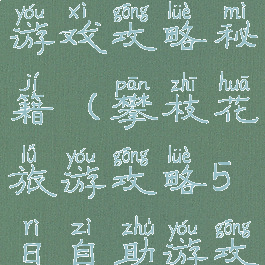 yóu xì gōng lüè mì
游戏攻略秘
jí pān zhī huā
籍(攀枝花
lǚ yóu gōng lüè
旅游攻略5
rì zì zhù yóu gōng
日自助游攻